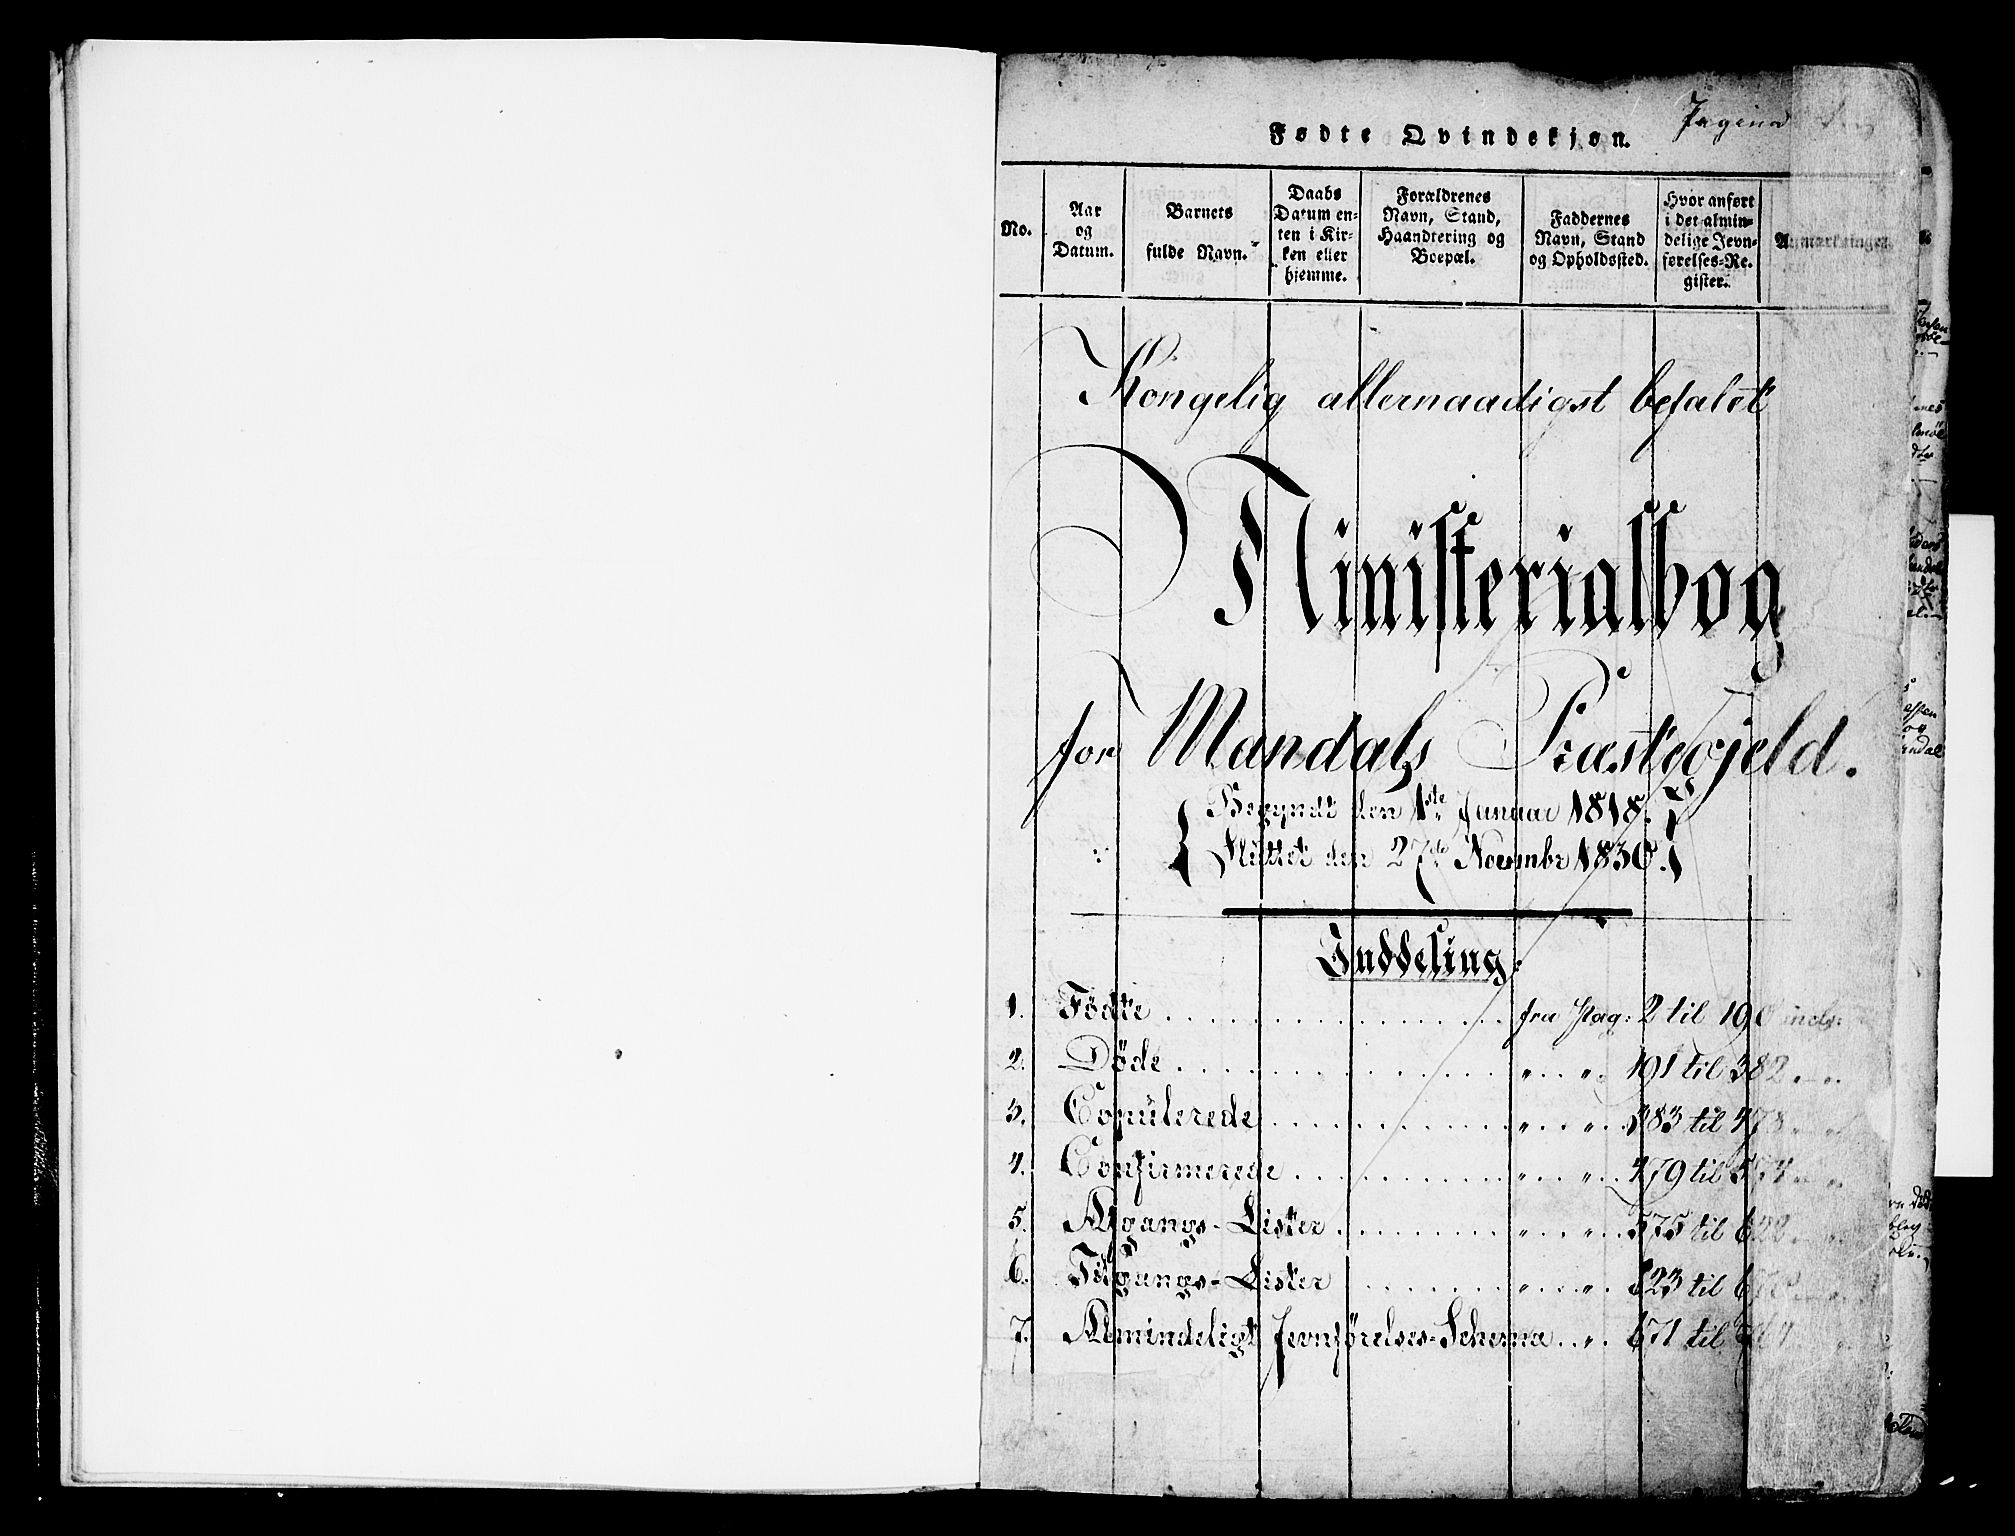 Pagina
Fødte Qvindekjøn.
No.
Aar
og
Datum.
Barnets
fulde Navn.
Daabs
Datum en-
ten i Kir-
ken eller
hjemme.
Forældrenes
Navn, Stand,
Haandtering og
Boepæl.
Faddernes
Navn, Stand
og Opholdssted.
Hvor anført
i det almin-
delige Jevn-
førelses-Re-
gister.
Anmærkninger.
Kongelig allernaadigst befalet
Ministerialbog
for Mandals Præstegjeld.
Begyndt den 1ste Januar 1818.
Sluttet den 27de Novembr 1830.
Inddeling:
1. Födte . . . . . fra Pag: 2 til 190 incls:
2. Döde . . . . . „ . . „ . 191 til 382 „ „
3. Copulerede . . . . . „ . . „ . . 383 til 478
4. Confirmerede . . . . . „ . . „ . . 479 til 574
5. Afgangs-Lister . . . . . „ . . „ . . 575 til 622
6. Tilgangs-Lister . . . . . „ . . „ . . 623 til
7. Almindeligt Jevnförelses-Schema . . „ . 671 til